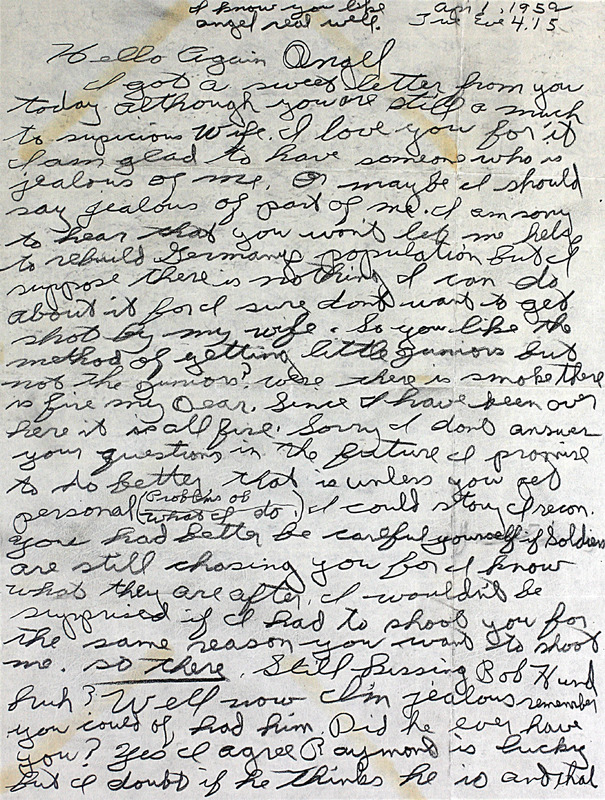 I know you like Apr 1, 1952
angel real well. Tue Eve 4:15
Hello Again Angel
I got a sweet letter from you
today although you're still a much
to supicious Wife. I love you for it
I am glad to have someone who is
jealous of me. Or maybe I should
say jealous of part of me. I am sorry
to hear that you won't let me help
to rebuild Germany's population but I
suppose there is nothing I can do
about it for I sure dont want to get
shot by my wife. So you like the
method of getting little juniors but
not the juniors? well there is smoke there
is fire my Dear. Since I have been over
here it is all fire. Sorry I dont answer
your questions in the future I promise
to do better that is unless you get
personal (Problems of what I do.) I could story I recon.
You had better be careful yourself if Soldiers
are still chasing you for I know
what they are after, I wouldn't be
surprised if I had to shoot you for
the same reason you want to shoot
me. so there. Still kissing Bob Hund
huh? Well now I'm jealous remember
you could of had him. Did he ever have
you? Yes I agree Raymond is lucky
but I doubt if he thinks he is and that